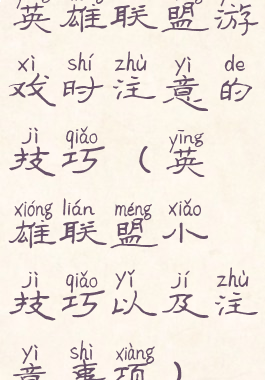 英雄联盟游
xì shí zhù yì de
戏时注意的
jì qiǎo yīng
技巧（英
xióng lián méng xiǎo
雄联盟小
jì qiǎo yǐ jí zhù
技巧以及注
yì shì xiàng
意事项）